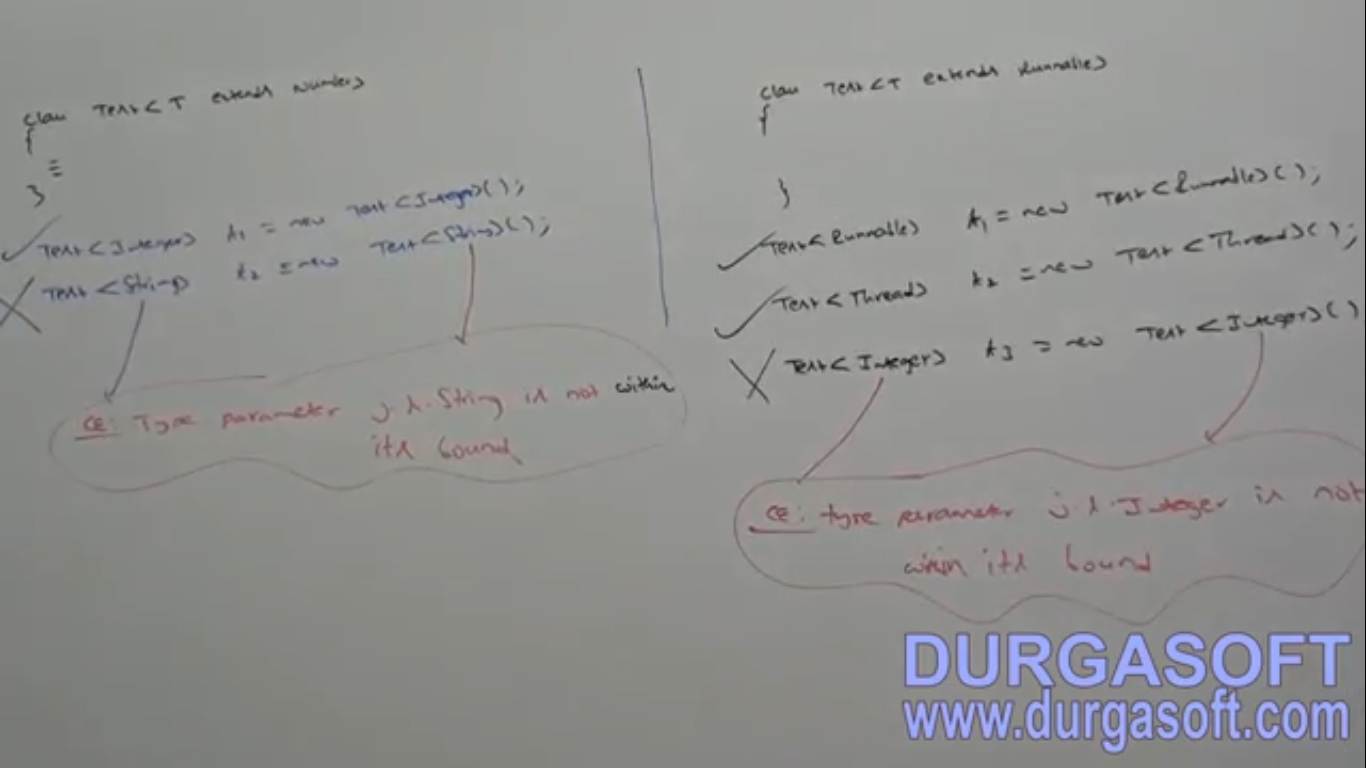 class Test<T extends Number>
{
}
Test<Integer> t1 = new Test<Integer>();
Test<String> t2 = new Test<String>();
CE: Type parameter j.l.String is not within
its bound
class Test<T extends Runnable>
{
}
Test<Runnable> t1 = new Test<Runnable>();
Test<Thread> t2 = new Test<Thread>();
Test<Integer> t3 = new Test<Integer>()
CE: type parameter j.l.Integer is not
within its bound
DURGASOFT
www.durgasoft.com